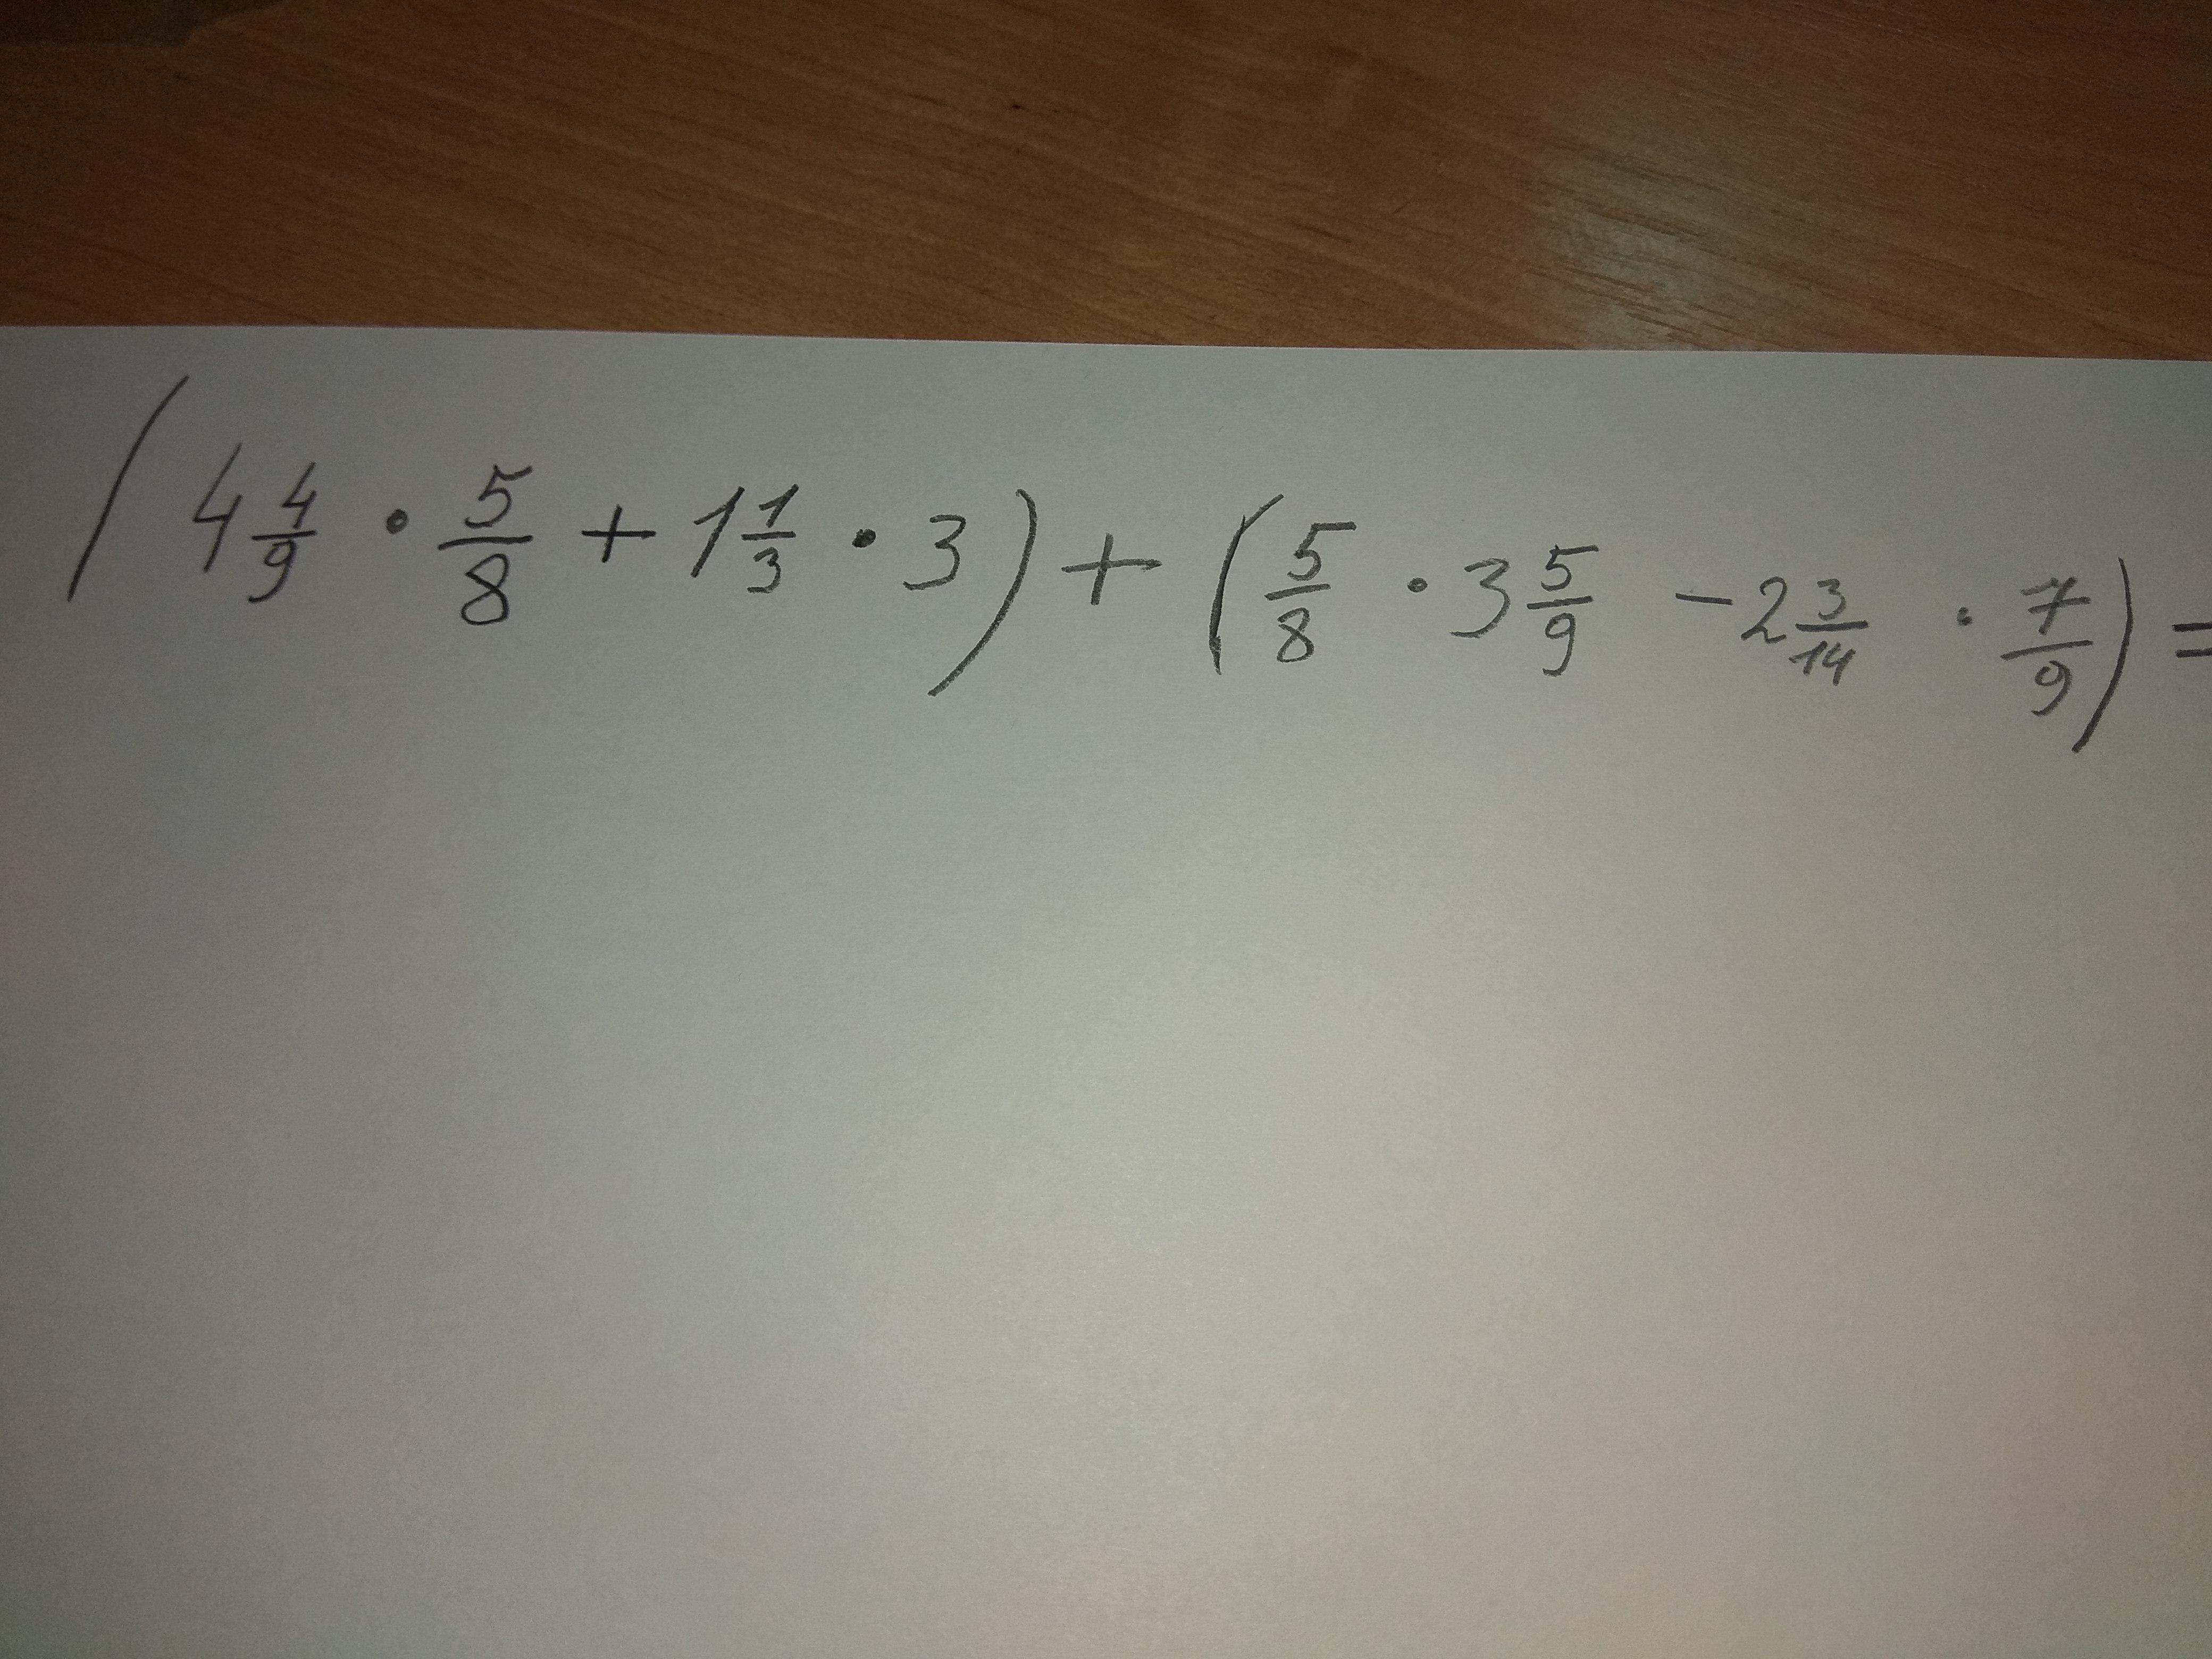 (4 4/9 · 5/8 + 1 1/3 · 3) + (5/8 · 3 5/9 - 2 3/14 · 7/9) =